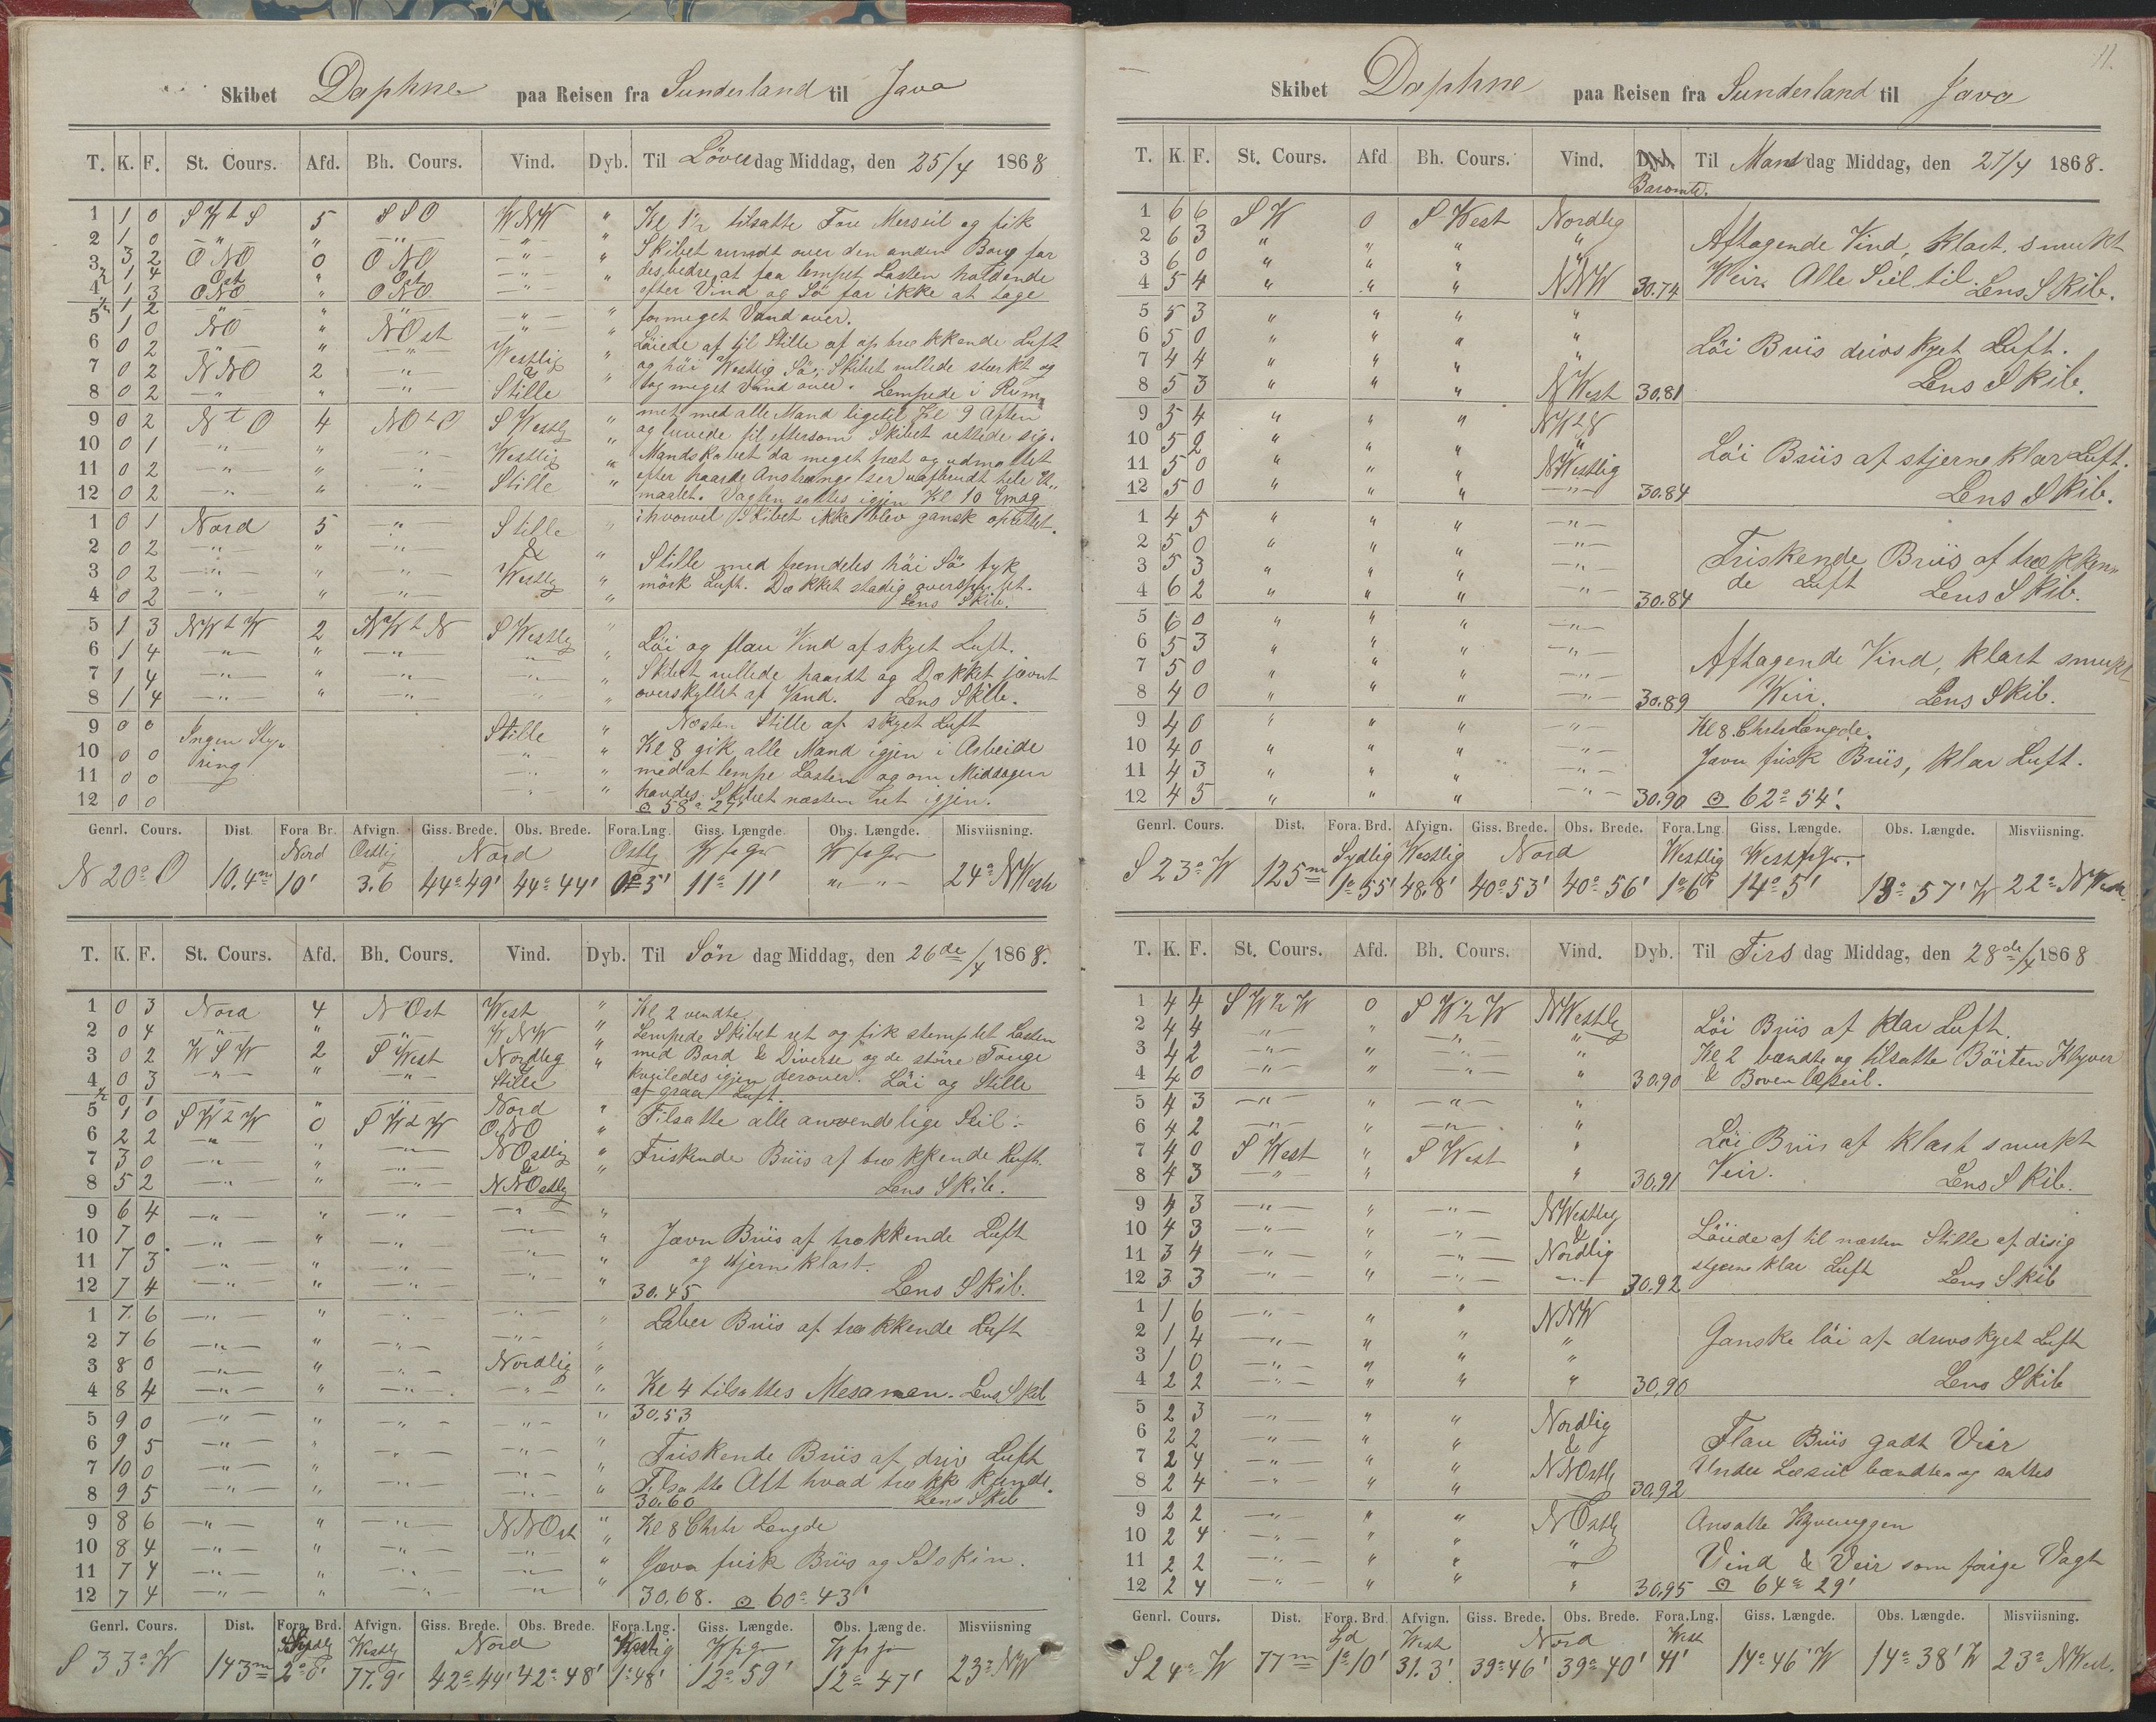 Skibet Daphne paa Reisen fra Sunderland til Java
T. K. F. St. Cours. Afd. Bh. Cours. Vind. Dyb. Til Löverdag Middag, den 25/4 1868
1 1 0 S W t S 5 S S O W N W " Kl 1½ tilsatte Fore Merseil og fik
2 1 0 —"— " —"— —"— " Skibet rundt over den anden Boug for
3 3 2 O N O 0 O N O —"— " des bedre at faa lempet Lasten holdende
½ 1 4 Ost Ost
4 1 3 O N O " O N O —"— efter Vind og Sö for ikke at tage
½ 1 2 —"— " —"—
5 1 0 N O " N Ost —"— " formeget Vand over.
6 0 2 —"— " —"— Westlig " Löiede af til Stille af op trækkende Luft
7 0 2 N N O 2 —"— & " og höi Westlig Sö, Skibet rullede stærkt og
8 0 2 —"— " —"— Stille tog meget Vand over. Lempede i Rum„
9 0 2 N t O 4 N O t O S Westlig " met med alle Mand ligetil Kl 9 Aften
10 0 1 " " —"— Westlig " og luvede til eftersom Skibet rettede sig.
Mandskabet da meget træt og udmattet
11 0 2 —"— " " Stille " efter haarde Anstrængelser uafbrudt hele
12 0 2 —"— " —"— " maalet. Vagten sattes igjen Kl 10 Emag
1 0 1 Nord 5 —"— Stille " ihvorvel Skibet ikke blev gansk oprettet.
2 0 2 —"— " —"— & " Stille med fremdeles höi Sö tyk
3 0 2 —"— " —"— Westlig " mörk Luft. Dækket stadig overskyllet.
4 0 2 —"— " —"— " Lens Skib.
5 1 3 N W t W 2 N W t N S Westlig " Löi og flau Vind af skyet Luft.
6 1 4 —"— " —"— —"— "
7 1 4 —"— " —"— —"— " Skibet rullede haardt og Dækket jævnt
8 1 4 —"— " —"— —"— " overskyllet af Vand. Lens Skib.
9 0 0 Ingen Sty„ Stille " Næsten Stille af skyet Luft
10 0 0 ring —"— " Kl 8 gik alle Mand igjen i Arbeide
11 0 0 —"— " med at lempe Lasten og om Middagen
12 0 0 —"— " havdes Skibet næsten ret igjen.
☉ 58° 27'
Genrl. Cours. Dist. Fora Br. Afvign. Giss. Brede. Obs. Brede. Fora.Lng. Giss. Længde. Obs. Længde. Misviisning.
Nord Östlig Nord Ostlig W fr Gr W fr Gr
N 20° O 10.4m 10' 3.6 44° 49' 44° 44' 0° 5' 11° 11' " — " — 24° N West
T. K. F. St. Cours. Afd. Bh. Cours. Vind. Dyb. Til Söndag Middag, den 26de/4 1868.
1 0 3 Nord 4 N Ost West " Kl 2 vendte.
2 0 4 —"— " —"— W N W " Lempede Skibet ret og fik stemplet Lasten
3 0 2 W S W 2 S West Nordlig " med Bord & Diverse og de större Tonge
4 0 3 —"— " —"— Stille kveiledes igjen derover. Löi og Stille
½ 0 1 af graa Luft.
5 1 0 S W t W 0 S W t W Nord " Tilsatte alle anvendelige Seil.
6 2 2 —"— " —"— O N O "
7 3 0 —"— " —"— N Ostlig " Friskende Briis af trækkende Luft.
8 5 2 —"— " —"— N N Ostlig " Lens Skib.
9 6 4 —"— " —"— —"— "
10 7 0 —"— " —"— —"— " Jævn Briis af trækkende Luft
11 7 3 —"— " —"— —"— " og stjerneklart.
12 7 4 —"— " —"— —"— " 30.45 Lens Skib.
1 7 6 —"— " —"— —"— " Laber Briis af trækkende Luft
2 7 6 —"— " —"— —"— "
3 8 0 —"— " —"— Nordlig "
4 8 4 —"— " —"— —"— " Kl 4 tilsattes Mesanen. Lens Skib
5 9 0 —"— " —"— —"— " 30.53
6 9 5 —"— " —"— —"— " Friskende Briis af driv Luft
7 10 0 —"— " —"— —"— " Tilsatte Alt hvad trække kunde.
8 9 5 —"— " —"— —"— " 30.60 Lens Skib
9 8 6 —"— " —"— N N Ost " Kl 8 Chrtr Længde
10 8 4 —"— " —"— —"— "
11 7 4 —"— " —"— —"— " Jævn frisk Briis og Solskin.
12 7 4 —"— " —"— —"— " 30.68. ☉ 60° 43'
Genrl. Cours. Dist. Fora. Brd. Afvign. Giss. Brede. Obs. Brede. Fora.Lng. Giss. Længde. Obs. Længde. Misviisning
Sydlig Westlig Nord Westlig W fr Gr W fr Gr
S 33° W 143m 2° 0' 77.9' 42° 44' 42° 48' 1° 48' 12° 59' 12° 47' 23° N W
11.
Skibet Daphne paa Reisen fra Sunderland til Java
T. K. F. St. Cours. Afd Bh. Cours. Vind. Dyb. Til Mandag Middag, den 27/4 1868.
Baromtr.
1 6 6 S W 0 S West Nordlig
2 6 3 " " " " Aftagende Vind, klart smukt
3 6 0 " " " "
4 5 4 " " " N N W 30.74 Weir. Alle Seil til. Lens Skib.
5 5 3 " " " "
6 5 0 " " " Löi Briis drivskyet Luft.
7 4 4 " " " "
8 5 3 " " " N West 30.81 Lens Skib.
9 5 4 " " " N W t N
10 5 2 " " " " Löi Briis af stjerneklar Luft.
11 5 0 " " " N Westlig
12 5 0 " " " —"— 30.84 Lens Skib.
1 4 5 " " " —"—
2 5 0 " " " —"— Friskende Briis af trækken„
3 5 3 " " " —"—
4 6 2 " " " —"— 30.84 de Luft Lens Skib.
5 6 0 " " " —"—
6 5 3 " " " —"— Aftagende Vind, klart smukt
7 5 0 " " " —"—
8 4 0 " " " —"— 30.89 Weir. Lens Skib.
9 4 0 " " " —"— Kl 8 Chrtr Længde.
10 4 0 " " " —"— Jævn frisk Briis, klar Luft.
11 4 3 " " " —"—
12 4 5 " " " —"— 30.90 ☉ 62° 54'.
Genrl. Cours. Dist. Fora. Brd. Afvign. Giss. Brede. Obs. Brede. Fora.Lng. Giss. Længde. Obs. Længde. Misviisning.
Sydlig Westlig Nord Westlig West fr Gr.
S 23° W 125m 1° 55' 48.8' 40° 53' 40° 56' 1° 6' 14° 5' 13° 57' W 22° N West.
T. K. F. St. Cours. Afd. Bh. Cours. Vind. Dyb. Til Tirsdag Middag, den 28de/4 1868
1 4 4 S W t W 0 S W t W N Westlig
2 4 4 —"— " —"— " Löi Briis af klar Luft.
3 4 2 —"— " —"— " Kl 2 vændte og tilsatte Böiten Klyver
4 4 0 —"— " —"— " 30.90 & Boven læseil.
5 4 3 —"— " —"— "
6 4 2 —"— " —"— Löi Briis af klart smukt
7 4 0 S West " S West "
8 4 3 " " " " 30.91 Veir. Lens Skib.
9 4 3 —"— " —"— N Westlig
10 4 3 —"— " —"— & Löiede af til næsten Stille af disig
11 3 4 —"— " —"— Nordlig
12 3 3 —"— " —"— —"— 30.92 stjerne klar Luft Lens Skib
1 1 6 —"— " " N N W
2 1 4 —"— " " " Ganske löi af drivskyet Luft
3 1 0 —"— " " "
4 2 2 —"— " " " 30.90 Lens Skib
5 2 3 —"— " " Nordlig
6 2 2 —"— " " & Flau Briis godt Veir
7 2 4 —"— " " N N Ostlig Under Læseil vændte og sattes
8 2 4 —"— " " 30.92
9 2 2 —"— " " N Ostlig Ansatte
10 2 4 —"— " " "
11 2 2 —"— " " " Vind & Veir som forige Vagt
12 2 4 —"— " " " 30.95 ☉ 64° 29'
Genrl. Cours. Dist. Fora. Brd. Afvign. Giss. Brede. Obs. Brede. Fora.Lng. Giss. Længde. Obs. Længde. Misviisning.
Syd West Nord West
S 24° W 77m 1° 10' 31.3' 39° 46' 39° 40' 41' 14° 46' W 14° 38' W 23° N West.